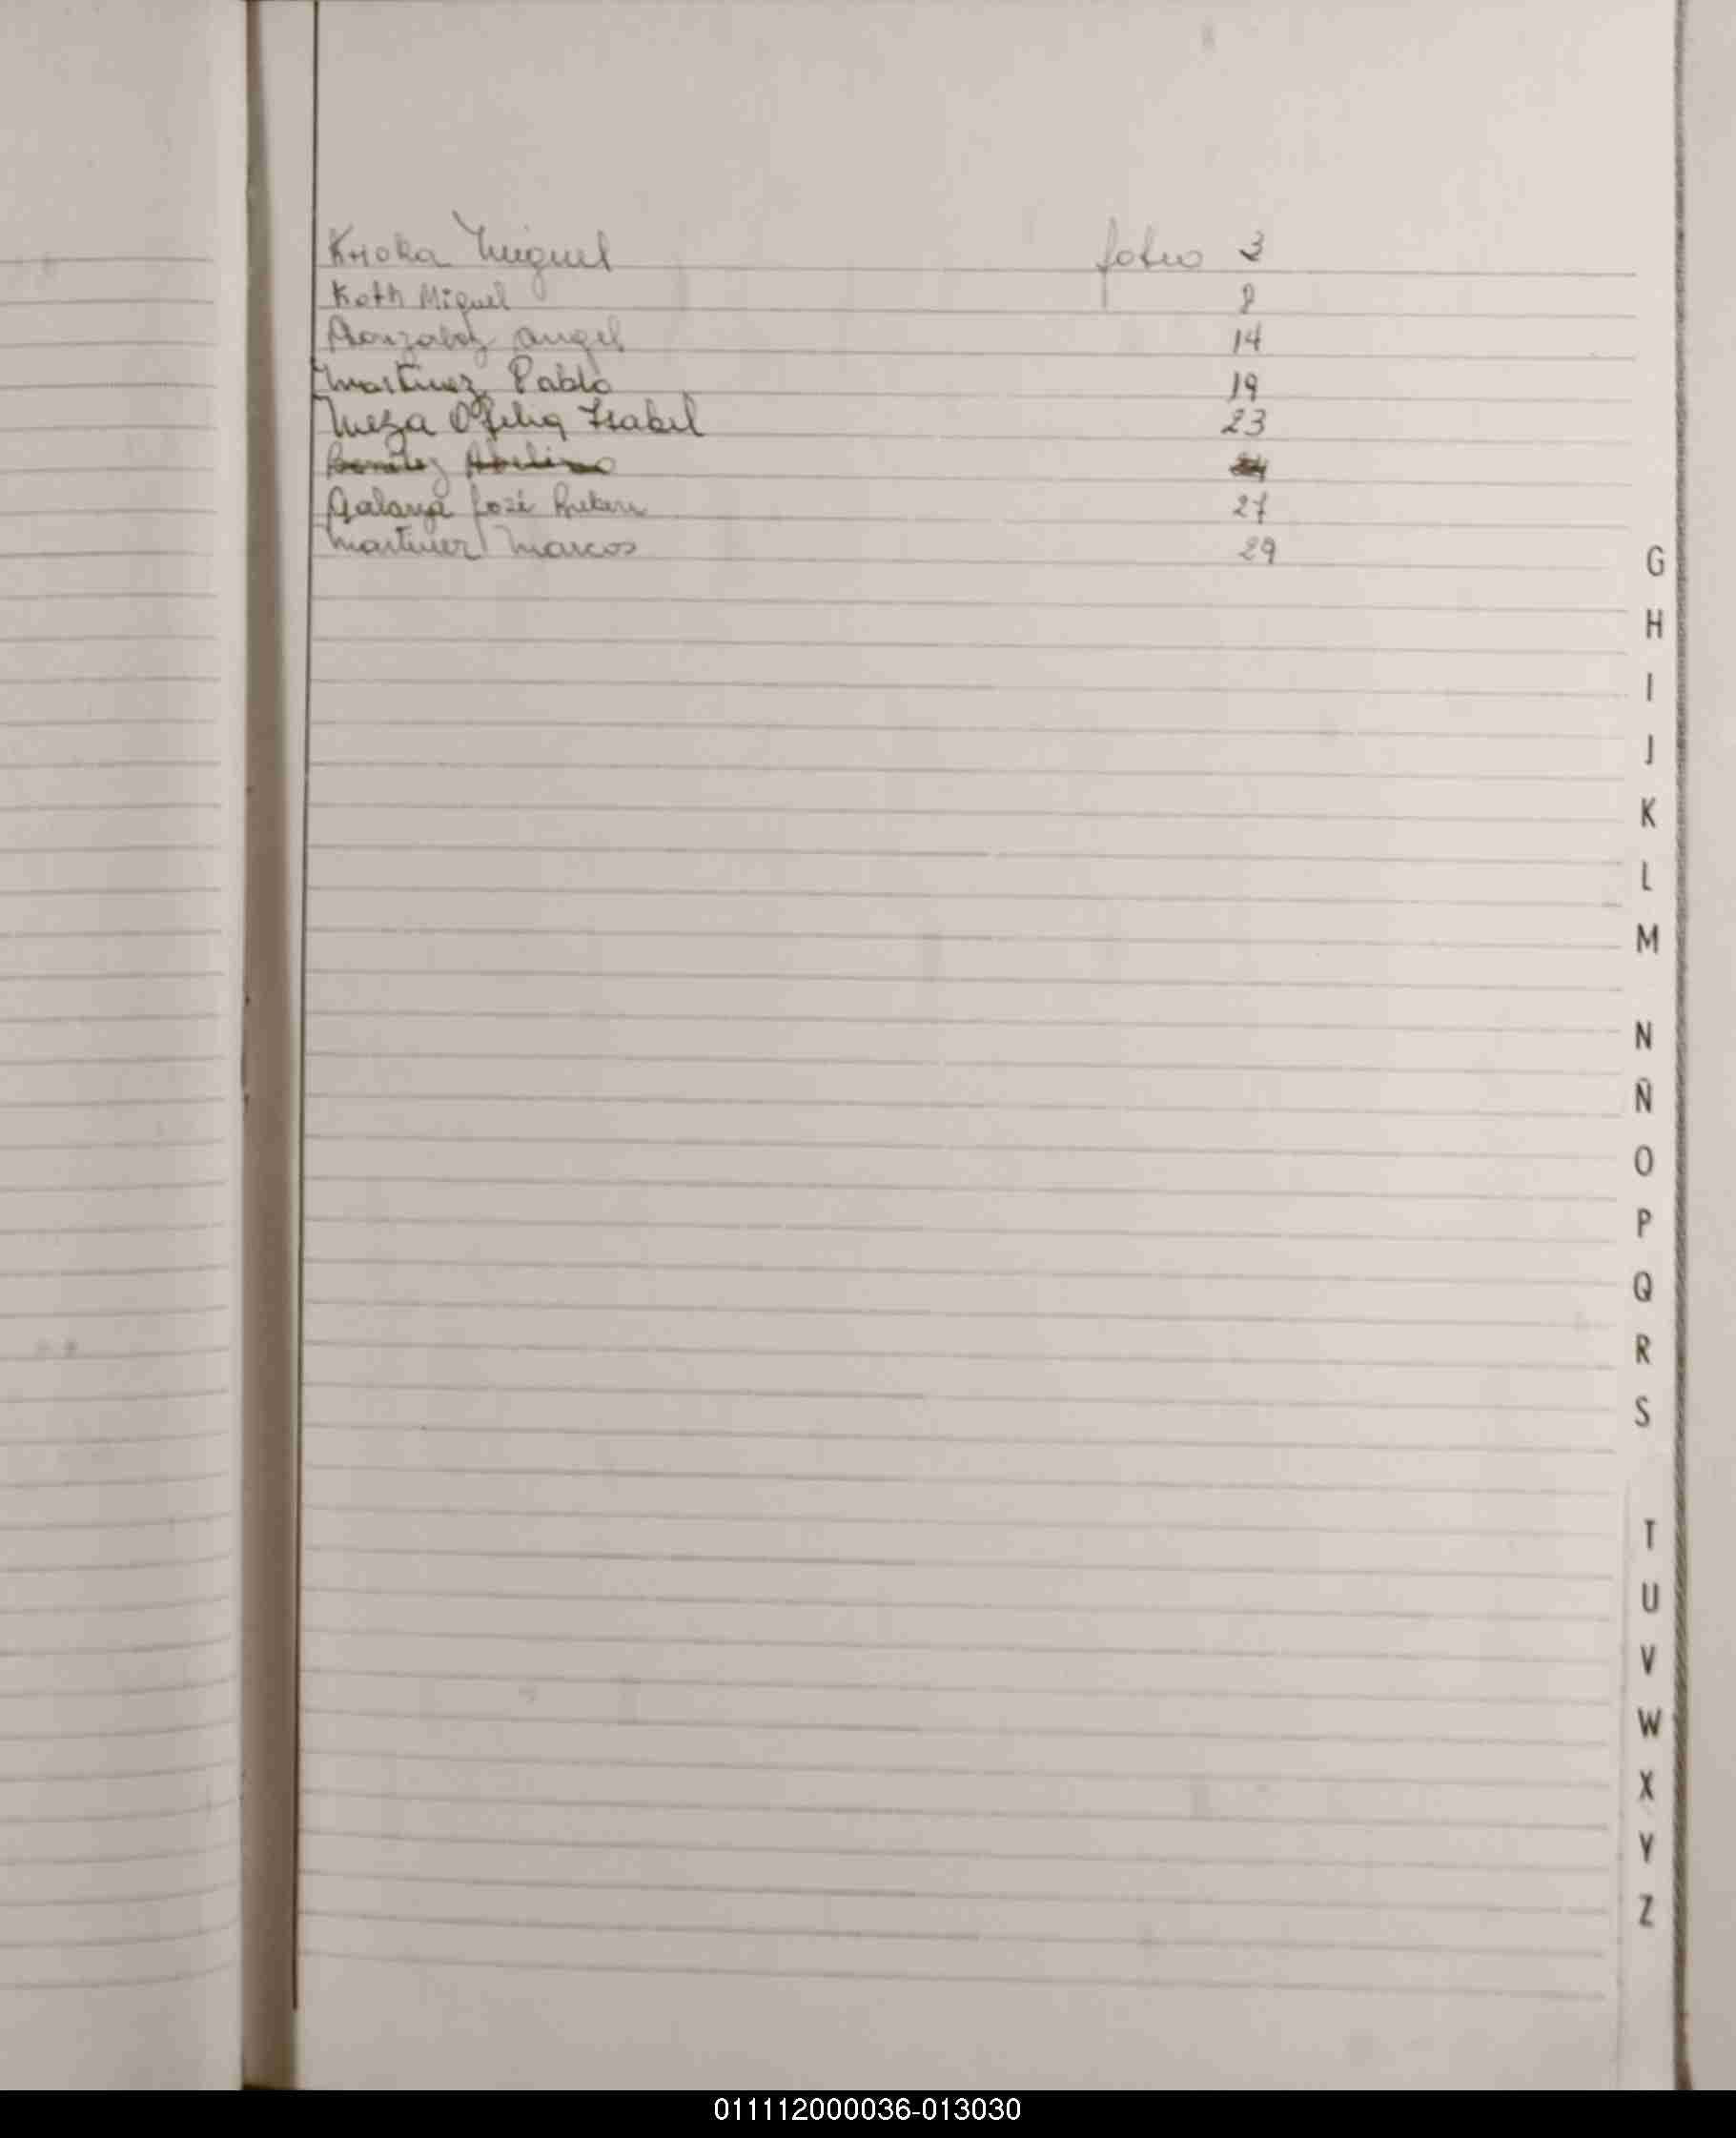 Krioka Miguel folio 3
Koth Miguel 8
Gonzalez Angel 14
Martinez Pablo 19
Meza Ofelia Isabel 23
Benitez
Galarza José Ruben 27
Martinez Marcos 29
G
H
I
J
K
L
M
N
Ñ
O
P
Q
R
S
T
U
V
W
X
Y
Z
011112000036-013030